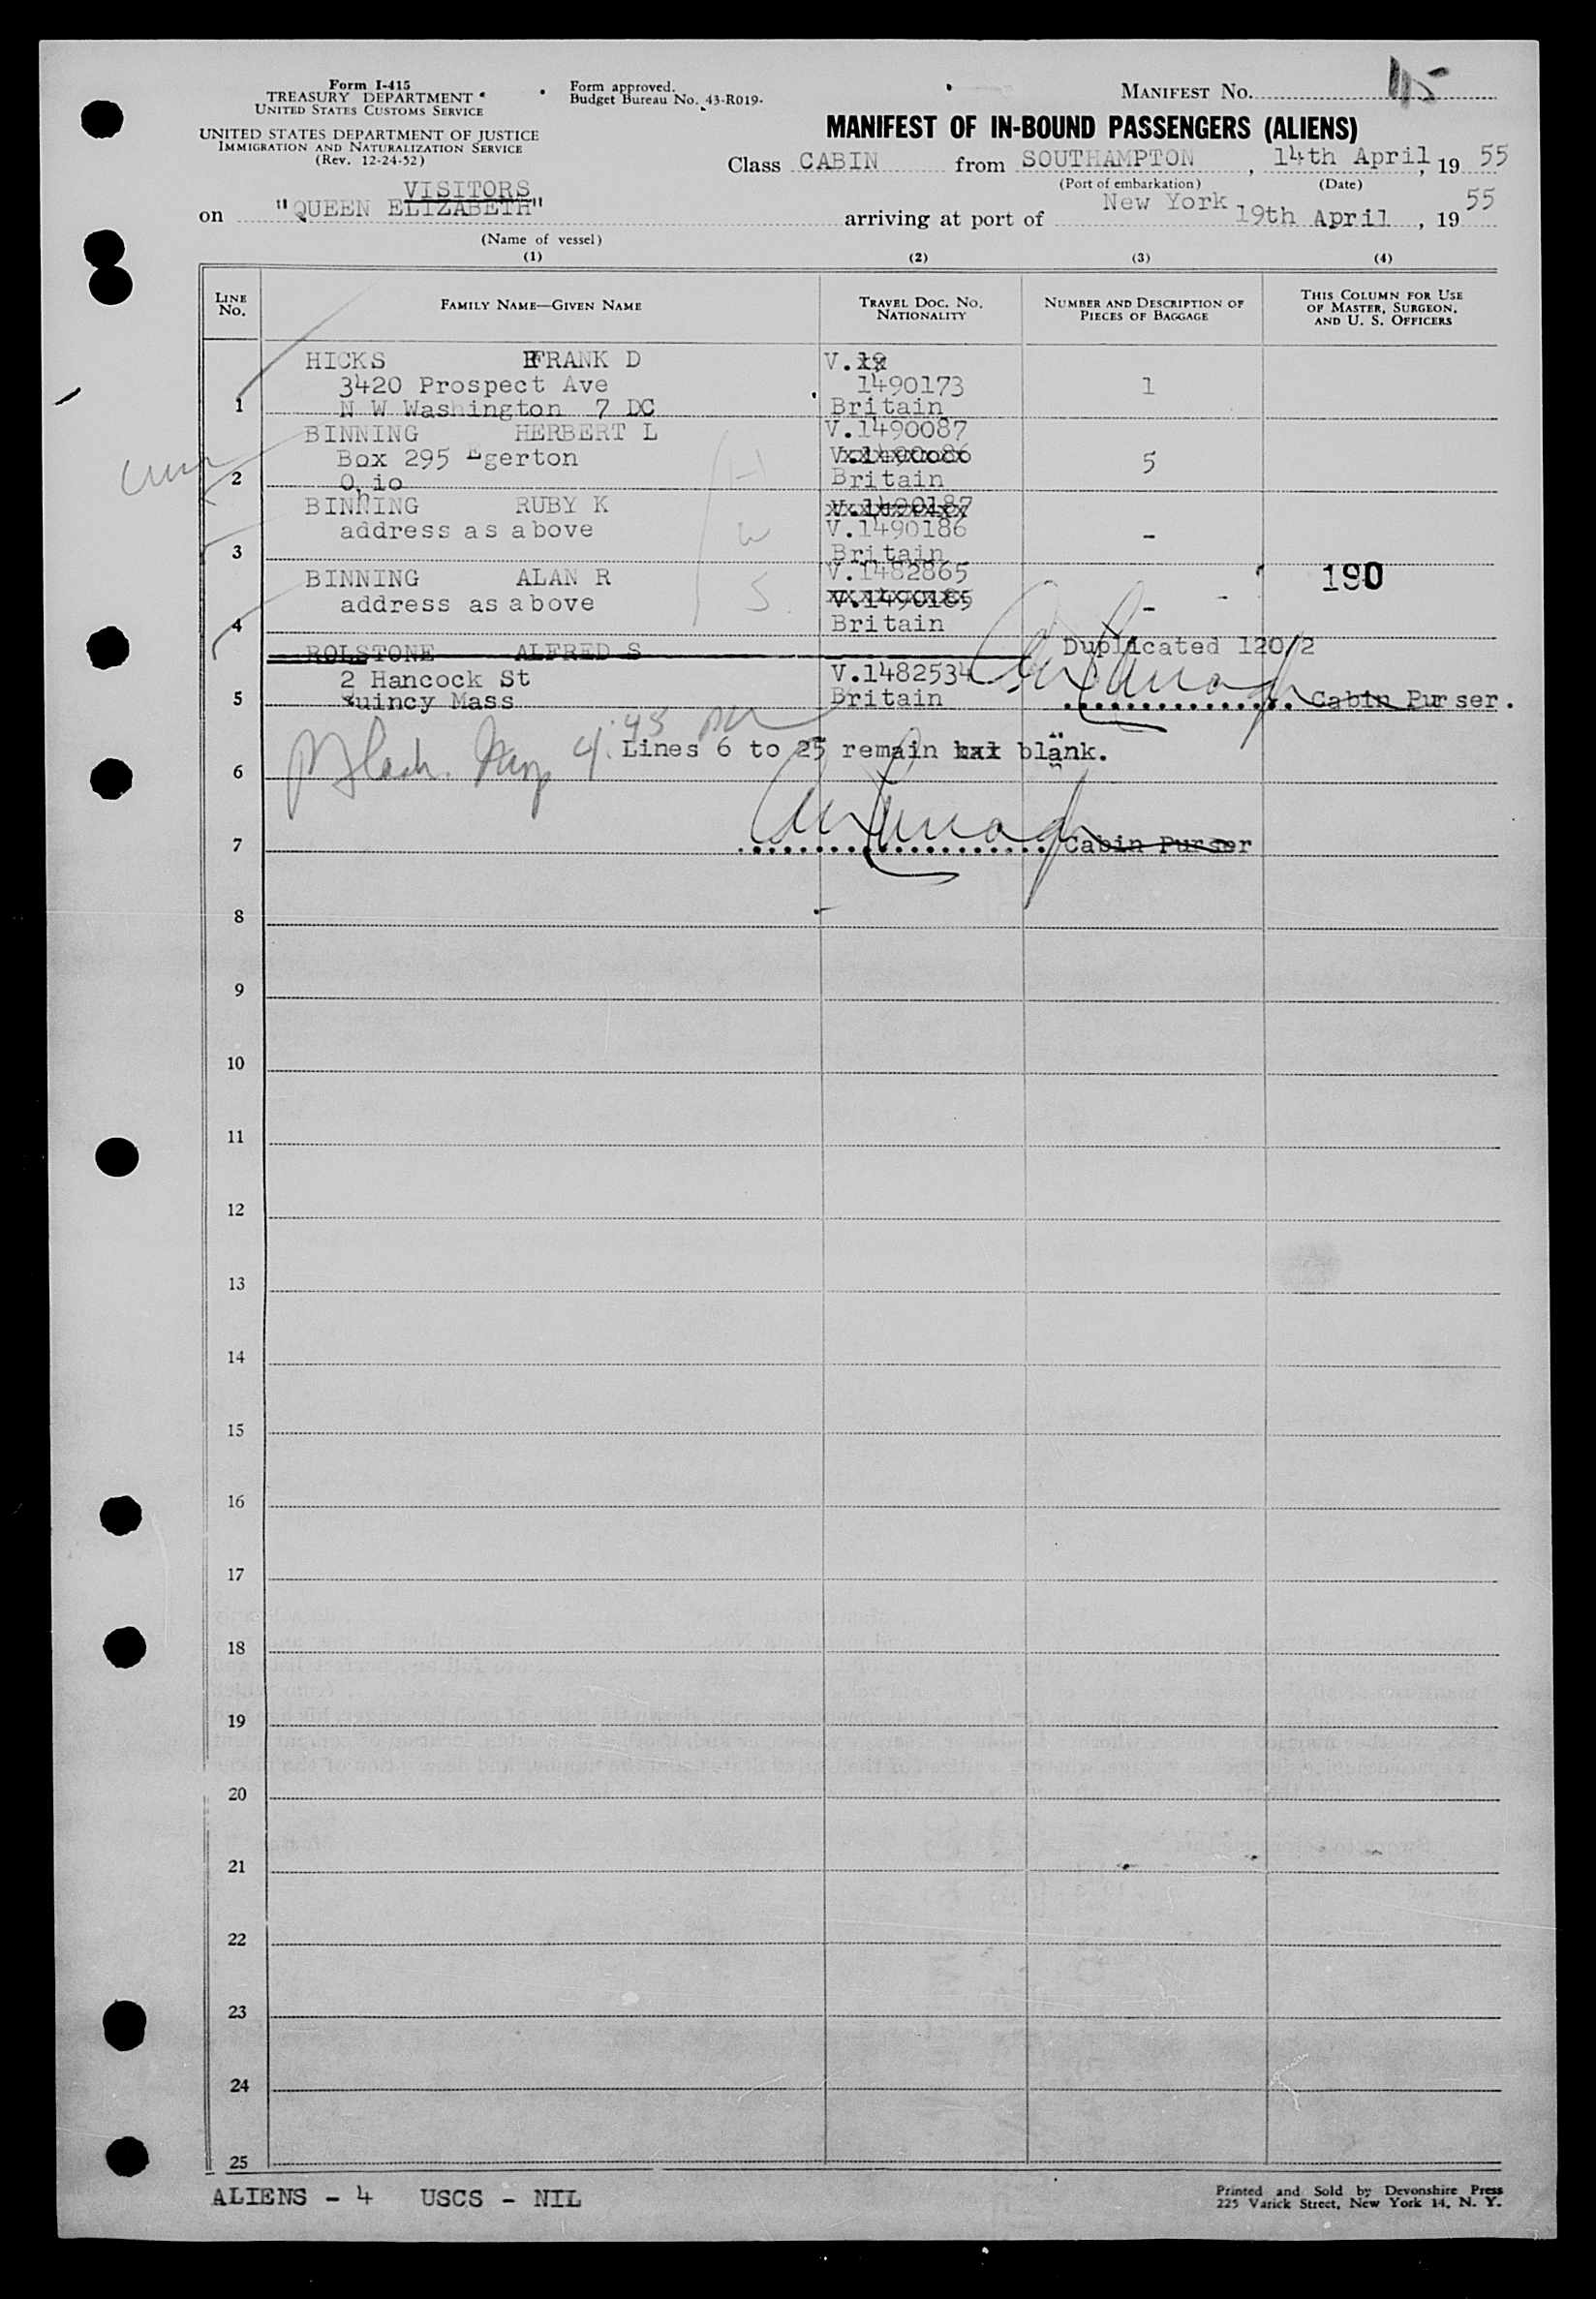 Form I-415
TREASURY DEPARTMENT
UNITED STATES CUSTOMS SERVICE
UNITED STATES DEPARTMENT OF JUSTICE
IMMIGRATION AND NATURALIZATION SERVICE
(Rev. 12-24-52)
Form approved.
Budget Bureau No. 43-R019.
MANIFEST No. 45
MANIFEST OF IN-BOUND PASSENGERS (ALIENS)
Class CABIN from SOUTHAMPTON, 14th April, 19 55
(Port of embarkation) (Date)
VISITORS
on "QUEEN ELIZABETH" arriving at port of New York 19th April, 19 55
(Name of vessel)
(1) (2) (3) (4)
LINE No. FAMILY NAME—GIVEN NAME TRAVEL DOC. NO. NATIONALITY NUMBER AND DESCRIPTION OF PIECES OF BAGGAGE THIS COLUMN FOR USE OF MASTER, SURGEON, AND U. S. OFFICERS
HICKS FRANK D V.
3420 Prospect Ave 1490173 1
1 N W Washington 7 DC Britain
BINNING HERBERT L V.1490087
Box 295 Egerton V.1490086 H 5
2 Ohio Britain
BINNING RUBY K V.1490187
address as above W V.1490186 -
3 Britain
BINNING ALAN R V.1482865 190
address as above S. V.1490185 -
4 Britain
ROLSTONE ALFRED S Duplicated 120/2
2 Hancock St V.1482534
5 Quincy Mass Britain Cabin Purser.
4.45 Lines 6 to 25 remain blank.
6
7 Cabin Purser
8
9
10
11
12
13
14
15
16
17
18
19
20
21
22
23
24
25
ALIENS - 4 USCS - NIL
Printed and Sold by Devonshire Press
225 Varick Street, New York 14, N. Y.